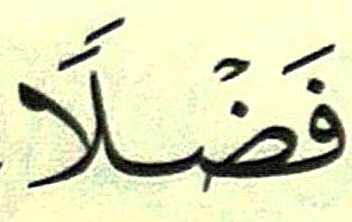 فَضْلًا